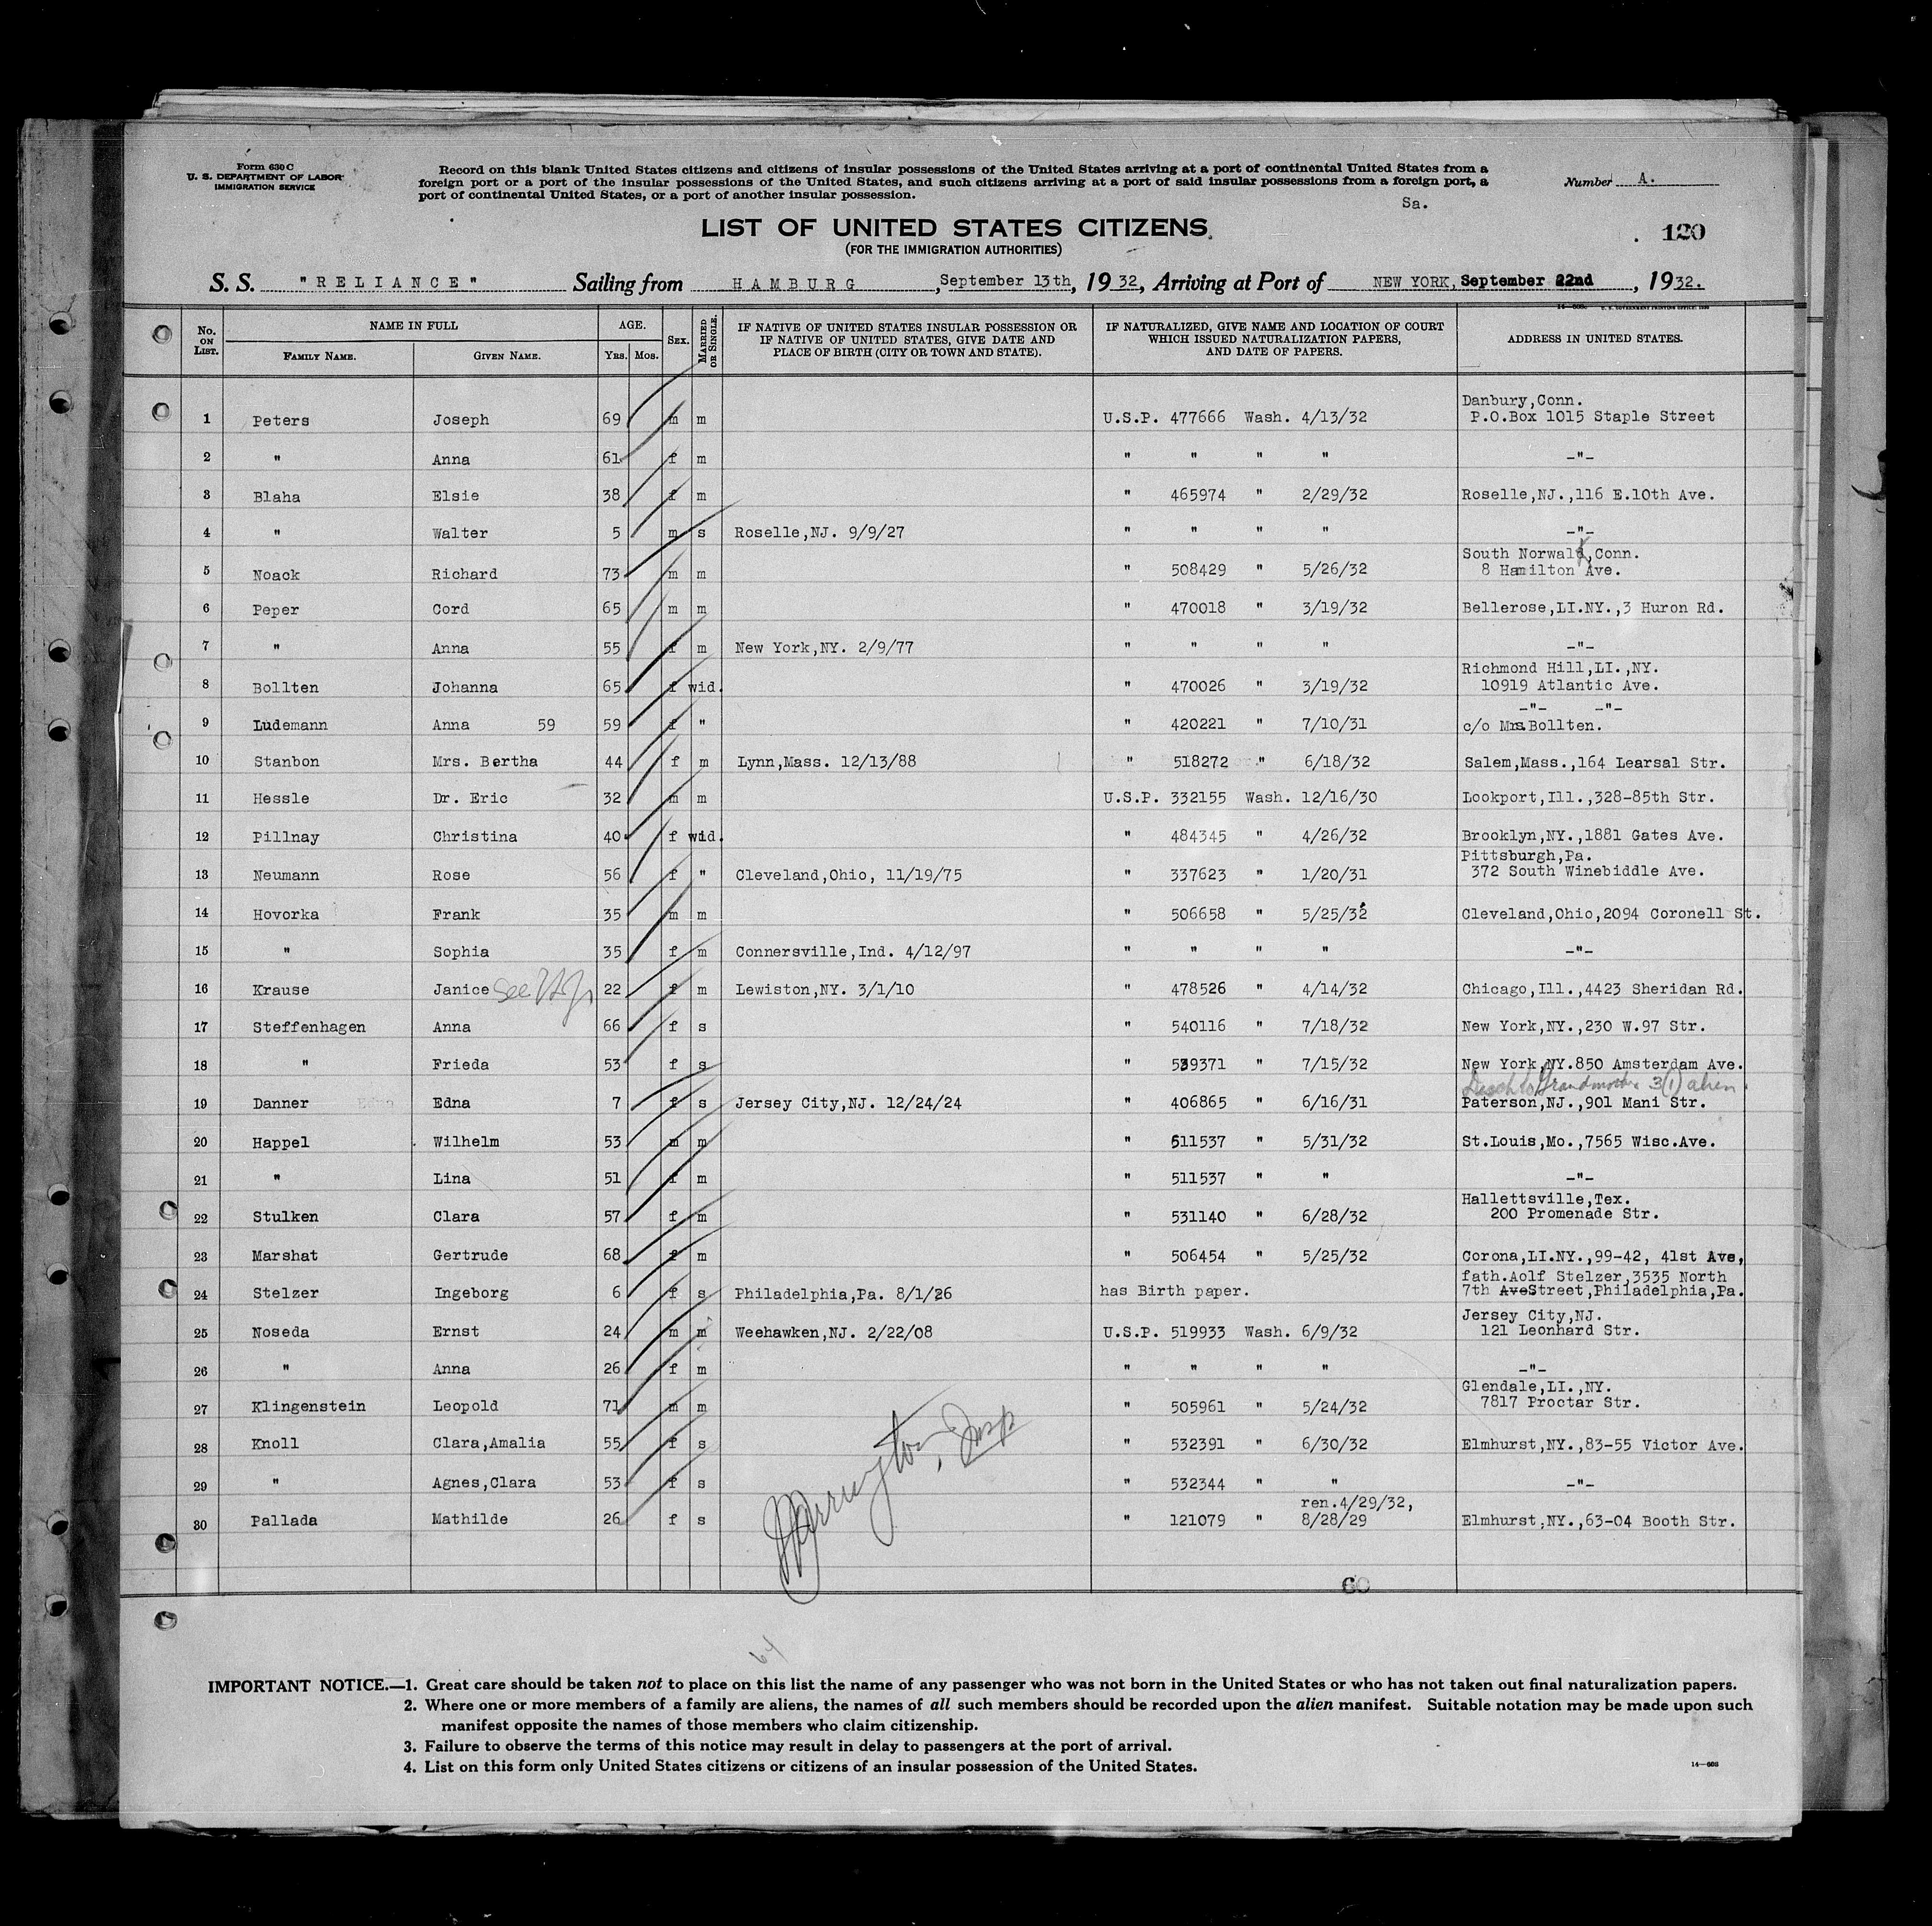 Form 630 C
U. S. DEPARTMENT OF LABOR
IMMIGRATION SERVICE
Record on this blank United States citizens and citizens of insular possessions of the United States arriving at a port of continental United States from a
foreign port or a port of the insular possessions of the United States, and such citizens arriving at a port of said insular possessions from a foreign port, a
port of continental United States, or a port of another insular possession.
Number A.
Sa.
LIST OF UNITED STATES CITIZENS
(FOR THE IMMIGRATION AUTHORITIES)
120
S. S. "RELIANCE" Sailing from HAMBURG, September 13th, 1932, Arriving at Port of NEW YORK, September 22nd, 1932.
No. ON LIST. NAME IN FULL FAMILY NAME. GIVEN NAME. AGE. YRS. MOS. SEX. MARRIED OR SINGLE. IF NATIVE OF UNITED STATES INSULAR POSSESSION OR IF NATIVE OF UNITED STATES, GIVE DATE AND PLACE OF BIRTH (CITY OR TOWN AND STATE). IF NATURALIZED, GIVE NAME AND LOCATION OF COURT WHICH ISSUED NATURALIZATION PAPERS, AND DATE OF PAPERS. ADDRESS IN UNITED STATES.
1 Peters Joseph 69 m m U.S.P. 477666 Wash. 4/13/32 Danbury,Conn. P.O.Box 1015 Staple Street
2 " Anna 61 f m " " " " -"-
3 Blaha Elsie 38 f m " 465974 " 2/29/32 Roselle,NJ.,116 E.10th Ave.
4 " Walter 5 m s Roselle,NJ. 9/9/27 " " " " -"-
5 Noack Richard 73 m m " 508429 " 5/26/32 South Norwalk,Conn. 8 Hamilton Ave.
6 Peper Cord 65 m m " 470018 " 3/19/32 Bellerose,LI.NY.,3 Huron Rd.
7 " Anna 55 f m New York,NY. 2/9/77 " " " " -"-
8 Bollten Johanna 65 f wid. " 470026 " 3/19/32 Richmond Hill,LI.,NY. 10919 Atlantic Ave.
9 Ludemann Anna 59 59 f " " 420221 " 7/10/31 -"- -"- c/o Mrs.Bollten.
10 Stanbon Mrs. Bertha 44 f m Lynn,Mass. 12/13/88 " 518272 " 6/18/32 Salem,Mass.,164 Learsal Str.
11 Hessle Dr. Eric 32 m m U.S.P. 332155 Wash. 12/16/30 Lookport,Ill.,328-85th Str.
12 Pillnay Christina 40 f wid. " 484345 " 4/26/32 Brooklyn,NY.,1881 Gates Ave.
13 Neumann Rose 56 f " Cleveland,Ohio, 11/19/75 " 337623 " 1/20/31 Pittsburgh,Pa. 372 South Winebiddle Ave.
14 Hovorka Frank 35 m m " 506658 " 5/25/32 Cleveland,Ohio,2094 Coronell St.
15 " Sophia 35 f m Connersville,Ind. 4/12/97 " " " " -"-
16 Krause Janice See 22 f m Lewiston,NY. 3/1/10 " 478526 " 4/14/32 Chicago,Ill.,4423 Sheridan Rd.
17 Steffenhagen Anna 66 f s " 540116 " 7/18/32 New York,NY.,230 W.97 Str.
18 " Frieda 53 f s " 539371 " 7/15/32 New York,NY.850 Amsterdam Ave.
Grandmother 3(1) alien
19 Danner Edna 7 f s Jersey City,NJ. 12/24/24 " 406865 " 6/16/31 Paterson,NJ.,901 Mani Str.
20 Happel Wilhelm 53 m m " 511537 " 5/31/32 St.Louis,Mo.,7565 Wisc.Ave.
21 " Lina 51 f m " 511537 " " -"-
22 Stulken Clara 57 f m " 531140 " 6/28/32 Hallettsville,Tex. 200 Promenade Str.
23 Marshat Gertrude 68 f m " 506454 " 5/25/32 Corona,LI.NY.,99-42, 41st Ave,
24 Stelzer Ingeborg 6 f s Philadelphia,Pa. 8/1/26 has Birth paper. fath.Aolf Stelzer,3535 North 7th AveStreet,Philadelphia,Pa.
25 Noseda Ernst 24 m m Weehawken,NJ. 2/22/08 U.S.P. 519933 Wash. 6/9/32 Jersey City,NJ. 121 Leonhard Str.
26 " Anna 26 f m " " " " -"-
27 Klingenstein Leopold 71 m m " 505961 " 5/24/32 Glendale,LI.,NY. 7817 Proctar Str.
28 Knoll Clara,Amalia 55 f s " 532391 " 6/30/32 Elmhurst,NY.,83-55 Victor Ave.
29 " Agnes,Clara 53 f s " 532344 " " -"-
30 Pallada Mathilde 26 f s " 121079 " ren.4/29/32, 8/28/29 Elmhurst,NY.,63-04 Booth Str.
Insp
60
64
IMPORTANT NOTICE.—1. Great care should be taken not to place on this list the name of any passenger who was not born in the United States or who has not taken out final naturalization papers.
2. Where one or more members of a family are aliens, the names of all such members should be recorded upon the alien manifest. Suitable notation may be made upon such
manifest opposite the names of those members who claim citizenship.
3. Failure to observe the terms of this notice may result in delay to passengers at the port of arrival.
4. List on this form only United States citizens or citizens of an insular possession of the United States.